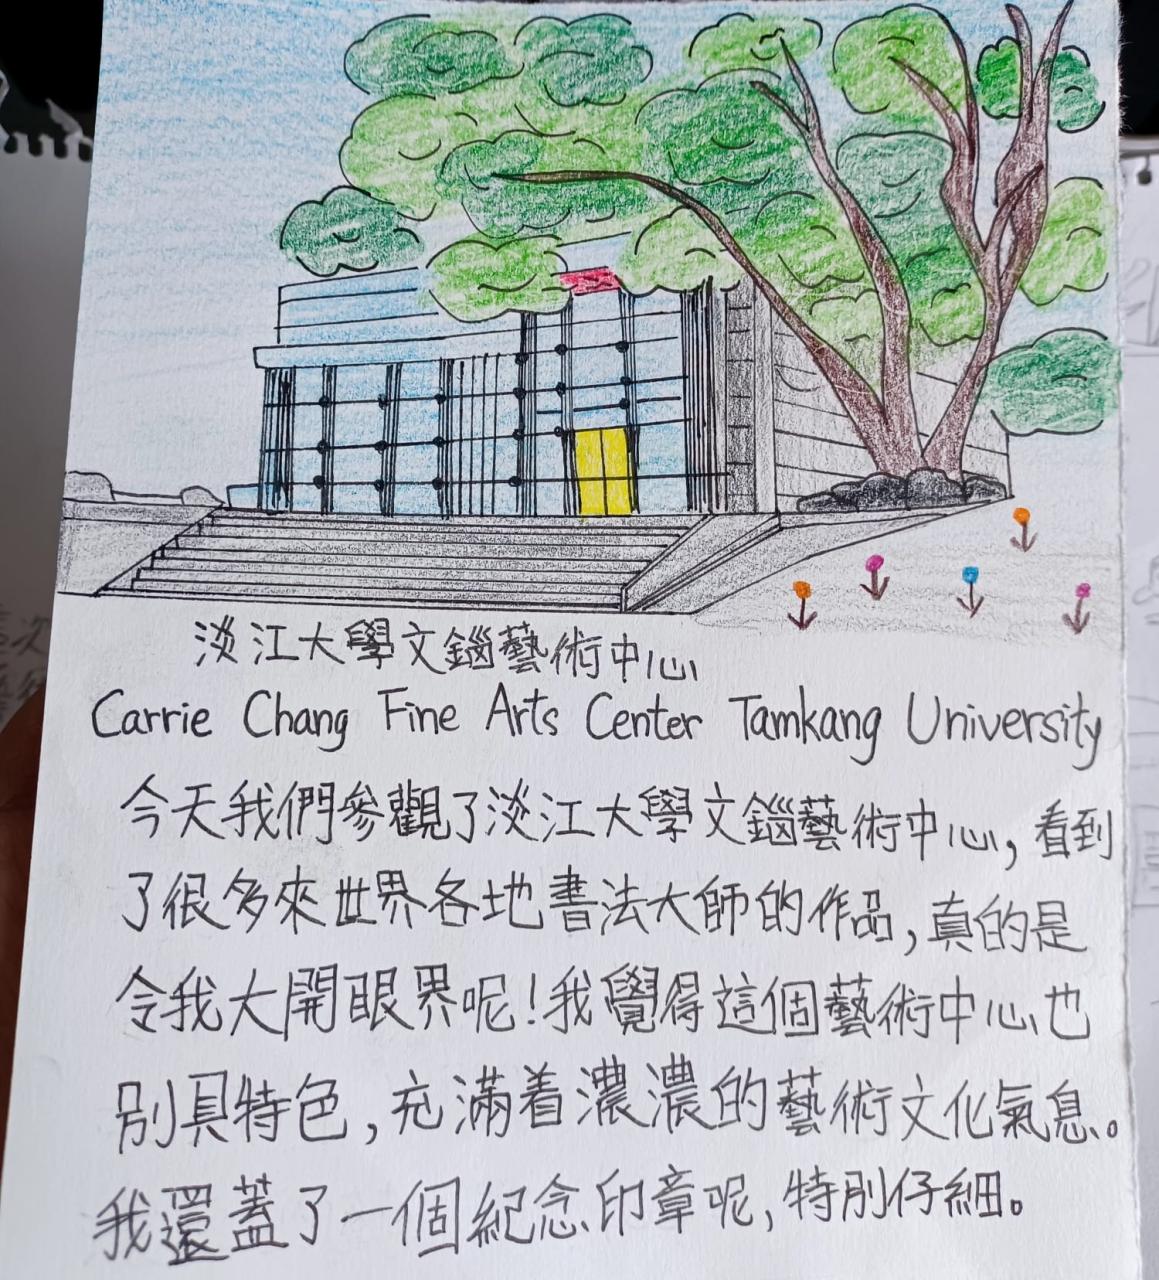 淡江大學文錙藝術中心
Carrie Chang Fine Arts Center Tamkang University
今天我們參觀了淡江大學文錙藝術中心，看到
了很多來世界各地書法大師的作品，真的是
令我大開眼界呢！我覺得這個藝術中心也
別具特色，充滿着濃濃的藝術文化氣息。
我還蓋了一個紀念印章呢，特別仔細。